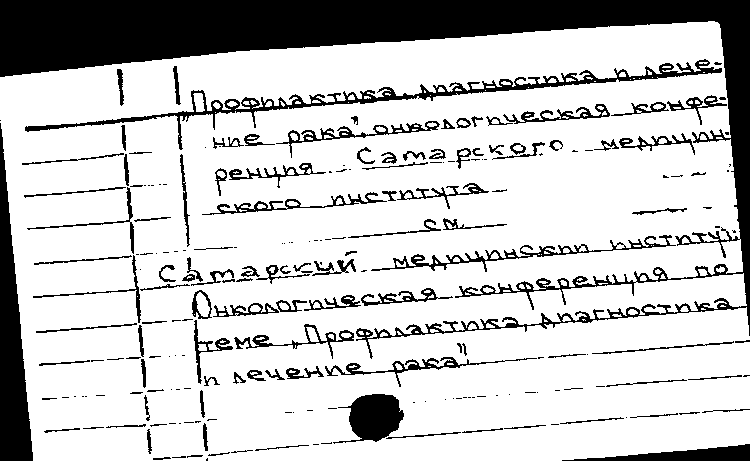 „Профилактика, диагностика и лече-
ние рака", онкологическая конфе-
ренция Самарского медицин-
ского института
см.
Самарский медицинский институт:
Онкологическая конференция по
теме „Профилактика, диагностика
и лечение рака".